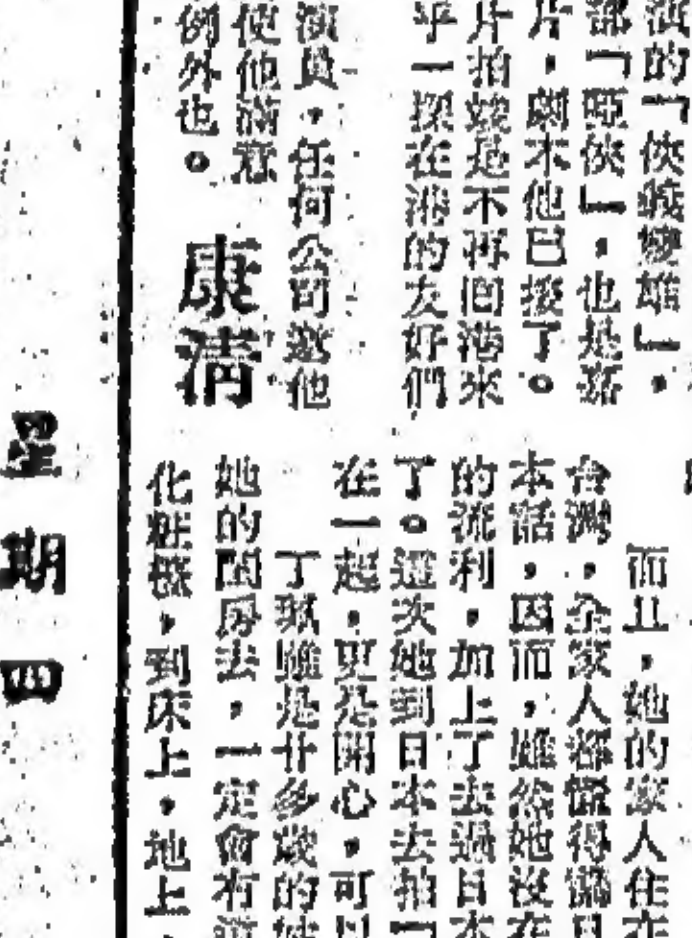 演的「俠義雙雄」，
部「啞俠」，也是嘉
片，劇本他已接了。
片拍竣是不再回港來
乎一探在港的友好們
演員，任何公司邀他
使他滿意
例外也。
康清
而且，她的家人住在
台灣，全家人都懂得講日
本話，因而，雖然她沒在
的流利，加上了去過日本
了。這次她到日本去拍
在一起，更是開心，可以
丁珮雖是廿多歲的
她的閨房去，一定會有
化粧檯，到床上，地上，
星期四